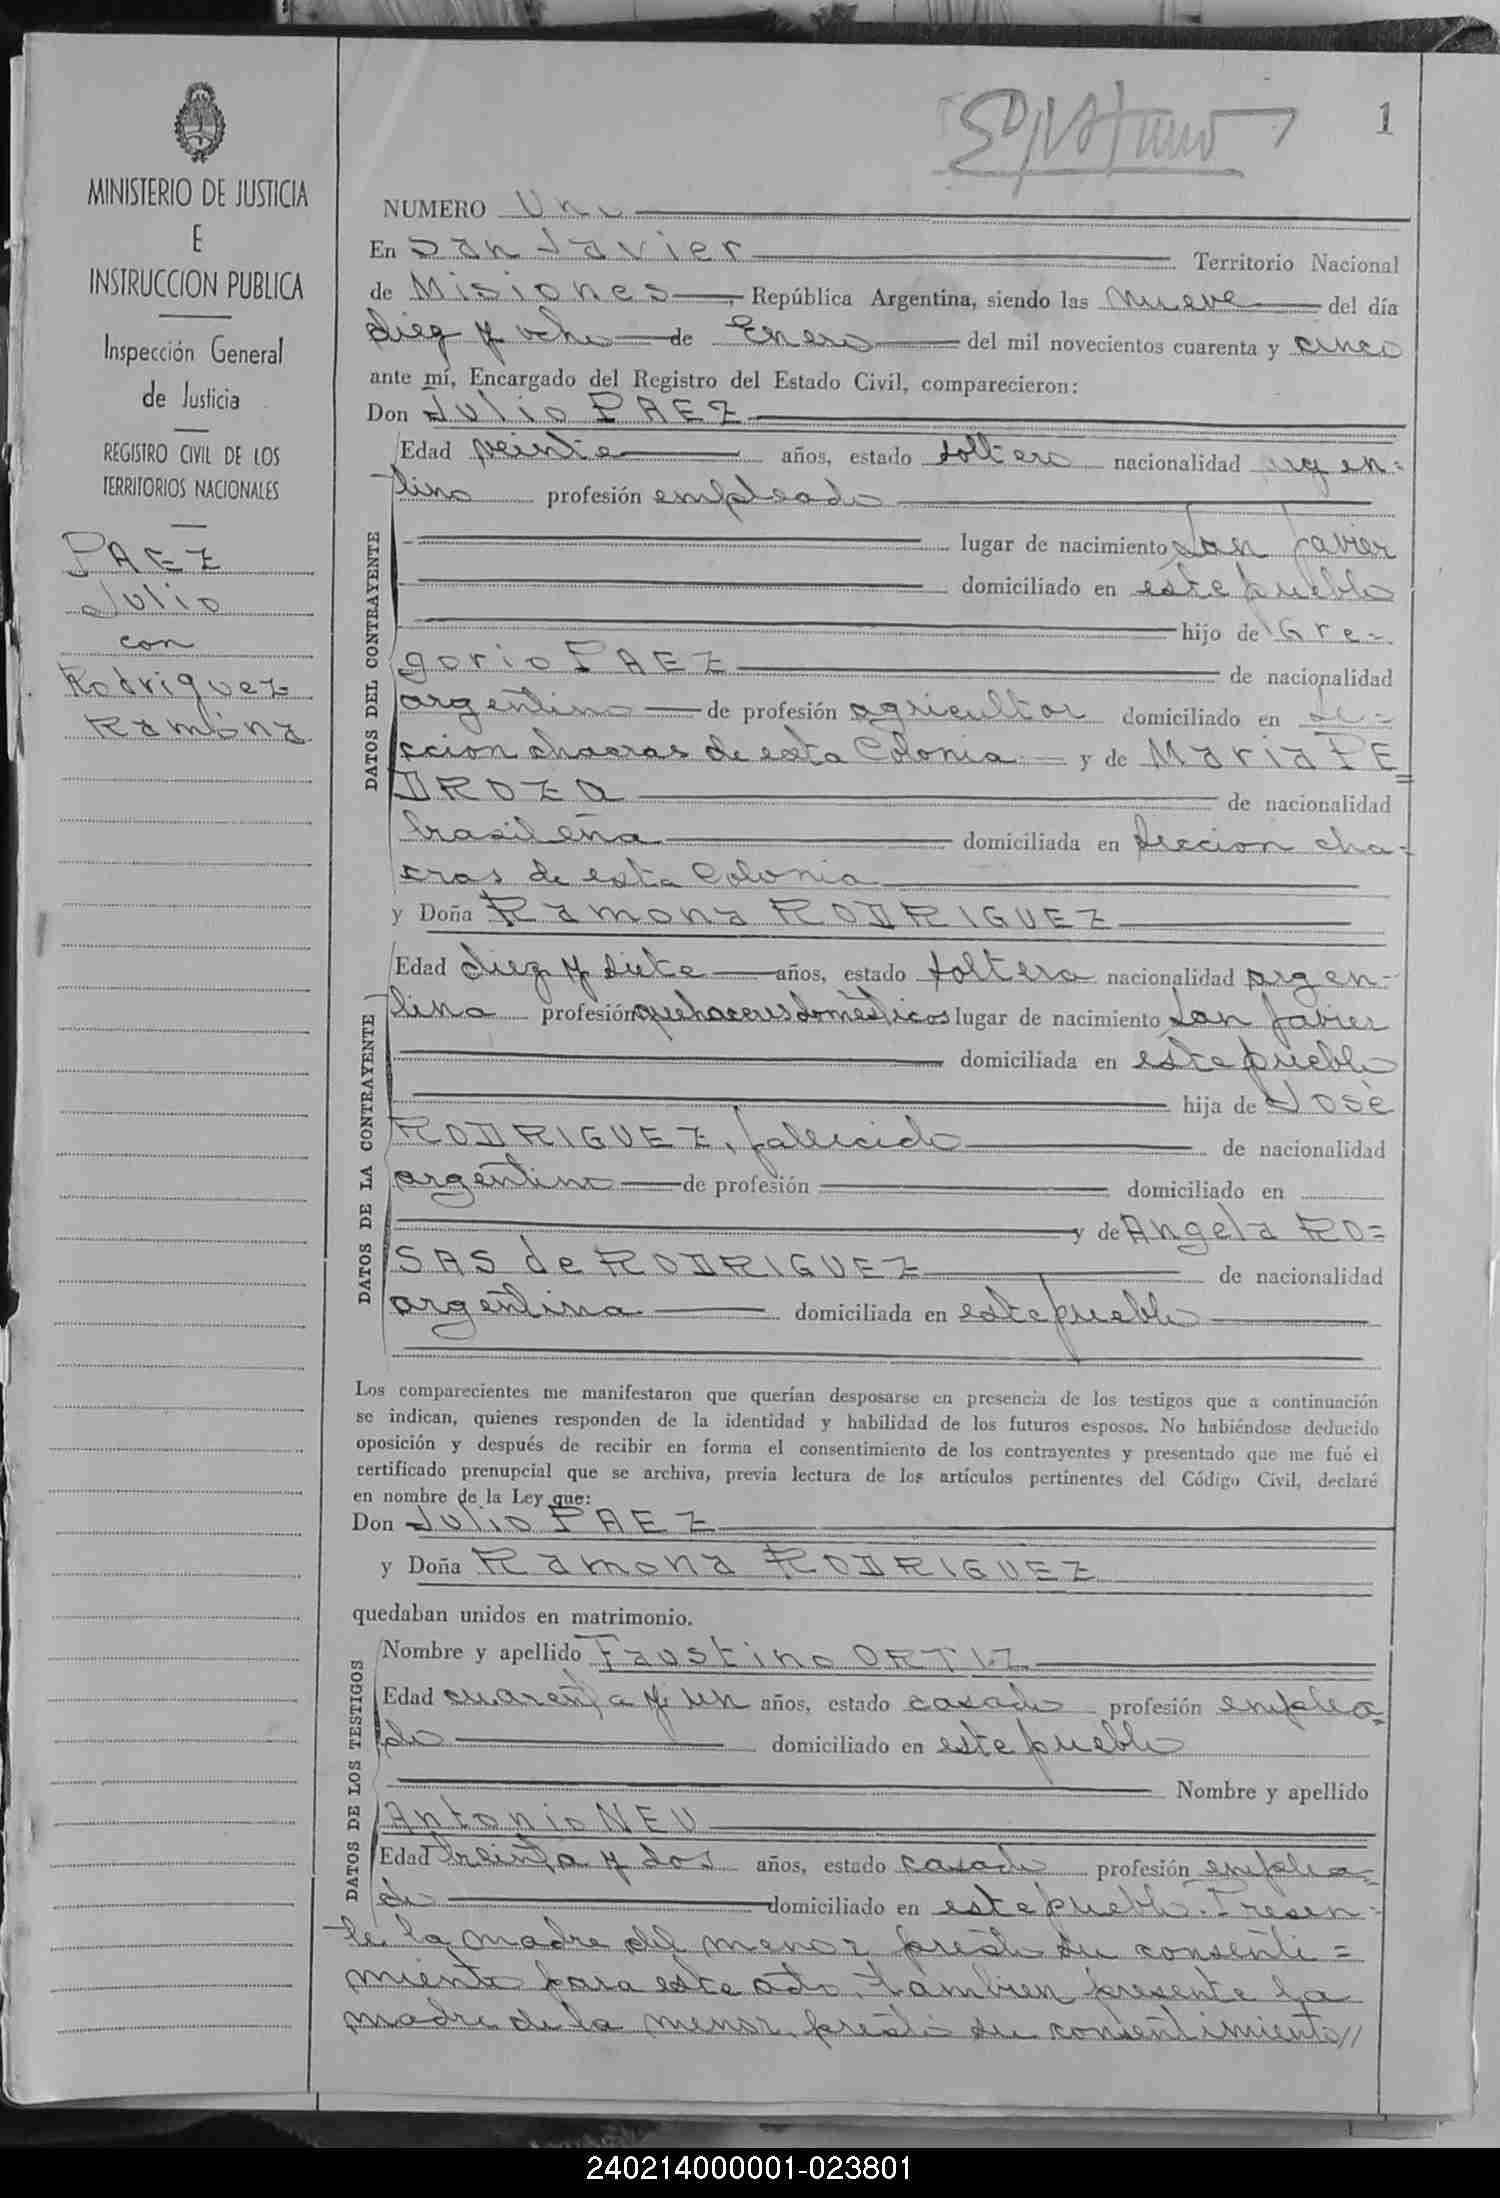 MINISTERIO DE JUSTICIA
E
INSTRUCCION PUBLICA
Inspección General
de Justicia
REGISTRO CIVIL DE LOS
TERRITORIOS NACIONALES
PAEZ
Julio
con
Rodriguez
Ramona
1
NUMERO Uno
En San Javier Territorio Nacional
de Misiones, República Argentina, siendo las nueve del día
diez y ocho de Enero del mil novecientos cuarenta y cinco
ante mí, Encargado del Registro del Estado Civil, comparecieron:
Don Julio PAEZ
DATOS DEL CONTRAYENTE
Edad veinte años, estado soltero nacionalidad argen-
tino profesión empleado
lugar de nacimiento San Javier
domiciliado en este pueblo
hijo de Gre-
gorio PAEZ de nacionalidad
argentino de profesión agricultor domiciliado en Se-
ccion chacras de esta Colonia y de Maria PE=
DROZA de nacionalidad
brasileña domiciliada en Seccion cha-
cras de esta Colonia
y Doña Ramona RODRIGUEZ
DATOS DE LA CONTRAYENTE
Edad diez y siete años, estado soltera nacionalidad argen-
tina profesión quehaceres domésticos lugar de nacimiento San Javier
domiciliada en este pueblo
hija de José
RODRIGUEZ, fallecido de nacionalidad
argentino de profesión domiciliado en
y de Angela RO=
SAS de RODRIGUEZ de nacionalidad
argentina domiciliada en este pueblo
Los comparecientes me manifestaron que querían desposarse en presencia de los testigos que a continuación
se indican, quienes responden de la identidad y habilidad de los futuros esposos. No habiéndose deducido
oposición y después de recibir en forma el consentimiento de los contrayentes y presentado que me fué el
certificado prenupcial que se archiva, previa lectura de los artículos pertinentes del Código Civil, declaré
en nombre de la Ley que:
Don Julio PAEZ
y Doña Ramona RODRIGUEZ
quedaban unidos en matrimonio.
DATOS DE LOS TESTIGOS
Nombre y apellido Faustino ORTIZ
Edad cuarenta y un años, estado casado profesión emplea=
do domiciliado en este pueblo
Nombre y apellido
Antonio NEU
Edad treinta y dos años, estado casado profesión emplea=
do domiciliado en este pueblo. Presen-
te la madre del menor prestó su consenti=
miento para este acto, tambien presente la
madre de la menor, prestó su consentimiento//
240214000001-023801